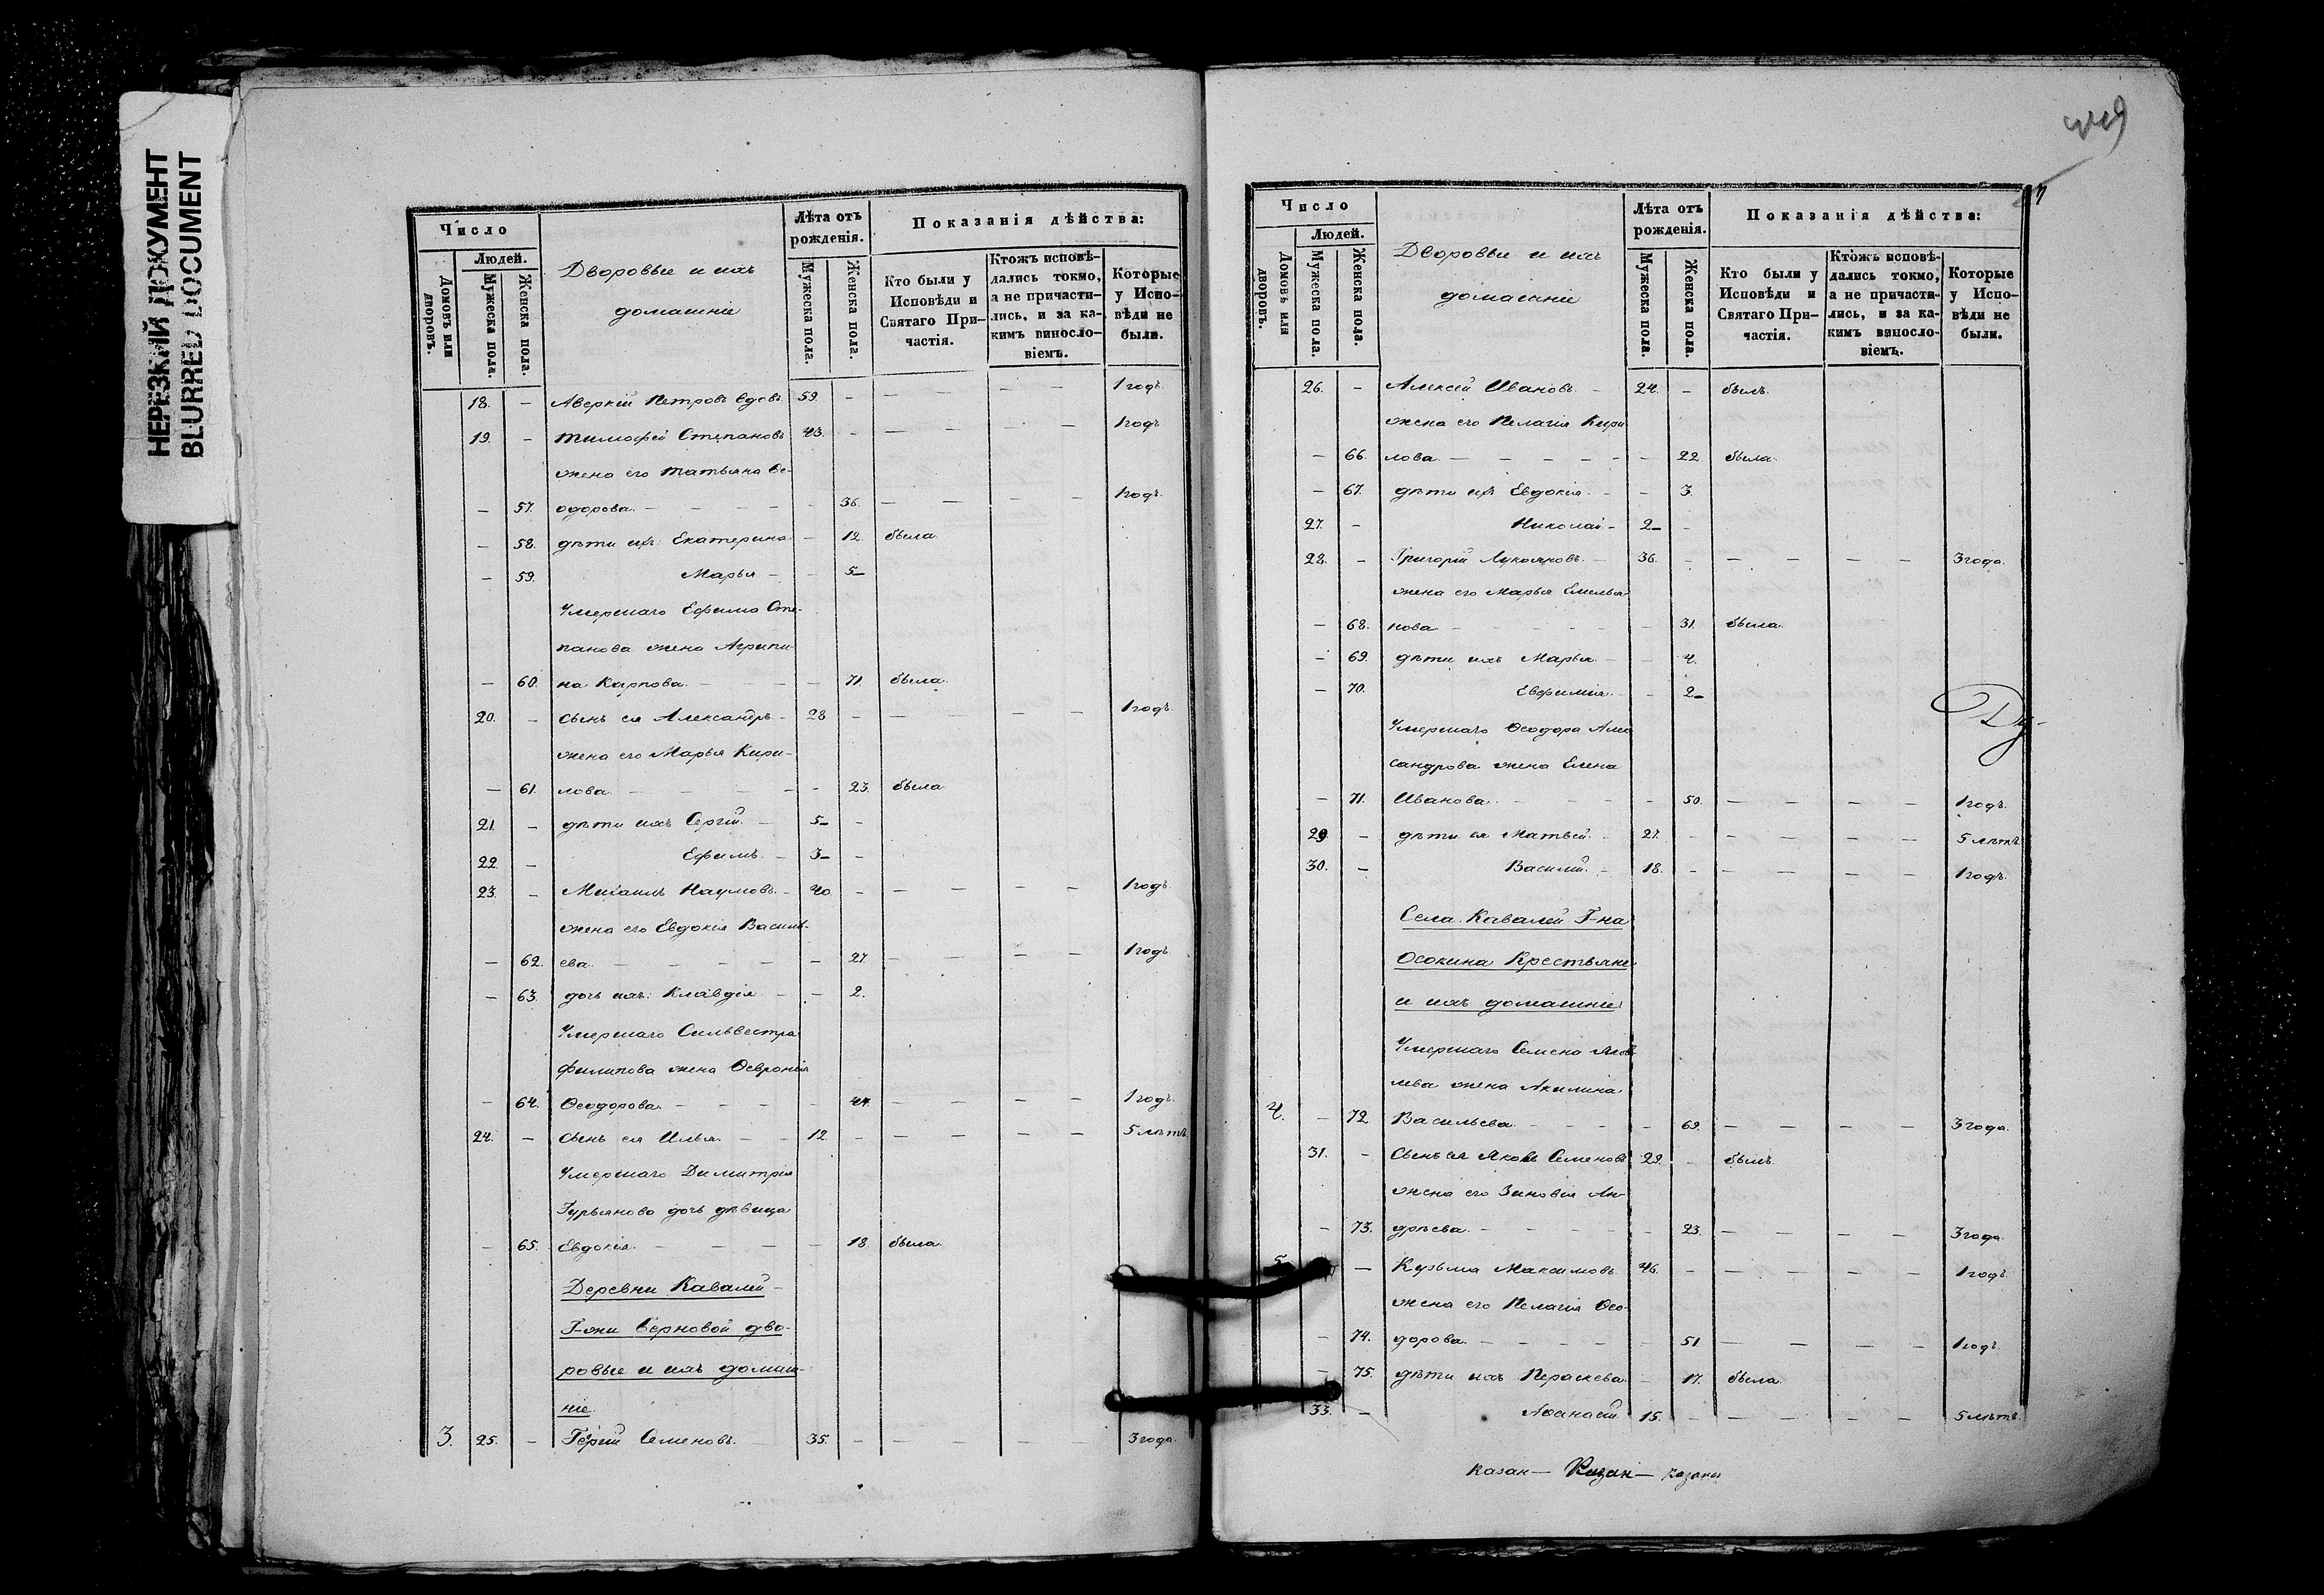 НЕРЕЗКИЙ ДОКУМЕНТ
BLURRED DOCUMENT
Число
Людей.
Домовъ или дворовъ.
Мужеска пола.
Женска пола.
Дворовые и ихъ
домашніе
Лѣта отъ рожденія.
Мужеска пола.
Женска пола.
Показанія дѣйства:
Кто были у Исповѣди и Святаго При-частія.
Ктожъ исповѣ-дались токмо, а не причасти-лись, и за ка-кимъ винословіемъ.
Которые у Испо-вѣди не были.
18. — Аверкій Петровъ вдовъ 59. — — — — — 1 годъ
19. — Тимофей Степановъ 43. — — — — — 1 годъ
жена его Татьяна Ѳе-
— 57. одорова — — — — — 36. — — — — 1 годъ.
— 58. дѣти ихъ: Екатерина — 12. была
— 59. Марья — — 5—
Умершаго Ефима Сте-
панова жена Агрипи-
— 60. на Карпова — — — 71. была.
20. — Сынъ ея Александръ — 28 — — — — — 1 годъ
жена его Марья Кири-
— 61. лова — — — — — 23. была
21. — дѣти ихъ Сергій — 5— —
22. — Ефимъ — 3— —
23. — Михаилъ Наумовъ — 40 — — — — — 1 годъ
жена его Евдокія Василь-
— 62. ева — — — — — 27. — — — — 1 годъ
— 63. дочь ихъ: Клавдія — — 2.
Умершаго Сильвестра
Филипова жена Ѳевронія
— 64. Ѳеодорова — — — — 44. — — — — 1 годъ.
24. — Сынъ ея Илья — — 12 — — — — — 5 лѣтъ
Умершаго Димитрія
Гурьянова дочь дѣвица
— 65. Евдокія — — — — — 18. была
Деревни Кавалей —
Г-жи дво-
ровые и ихъ домаш-
ніе.
3. 25. — Семеновъ. 35. — — — — — 3 года.
Число
Людей.
Домовъ или дворовъ.
Мужеска пола.
Женска пола.
Дворовые и ихъ
домашніе
Лѣта отъ рожденія.
Мужеска пола.
Женска пола.
Показанія дѣйства:
Кто были у Исповѣди и Святаго При-частія.
Ктожъ исповѣ-дались токмо, а не причасти-лись, и за ка-кимъ винословіемъ.
Которые у Испо-вѣди не были.
26. — Алексѣй Ивановъ — 24. — былъ.
жена его Пелагія Кири
— 66. лова — — — — — — 22. была.
— 67. дѣти ихъ Евдокія — — 3.
27. — Николай — 2— —
28. — Григорій Лукояновъ — 36. — — — — — 3 года.
жена его Марья Емелья
— 68. нова — — — — — — 31. была.
— 69. дѣти ихъ Марья — — 4.
— 70. Евфимія — — 2—
Умершаго Ѳеодора Алек
сандрова жена Елена
— 71. Иванова — — — — — 50. — — — — 1 годъ.
29 — дѣти ея Матвѣй — 27. — — — — — 5 лѣтъ
30. — Василій — 18. — — — — — 1 годъ.
Села Кавалей Г-на
Осокина Крестьяне
и ихъ домашніе
Умершаго Семена Яков
лева жена Акилина
4. — 72 Васильева — — — — 69. — — — — 3 года.
31. — Сынъ ея Яковъ Семеновъ 29. — былъ
жена его Зиновія Ан-
— 73. дрѣева — — — — — 23. — — — — 3 года.
5. — Кузьма Максимовъ 46. — — — — — 1 годъ
жена его Пелагія Ѳео-
— 74. дорова — — — — — 51 — — — — 1 годъ
— 75. дѣти ихъ Пераскева — 17. была
33. — Аѳанасій 15. — — — — — 5 лѣтъ.
Казан— Казан— Казани